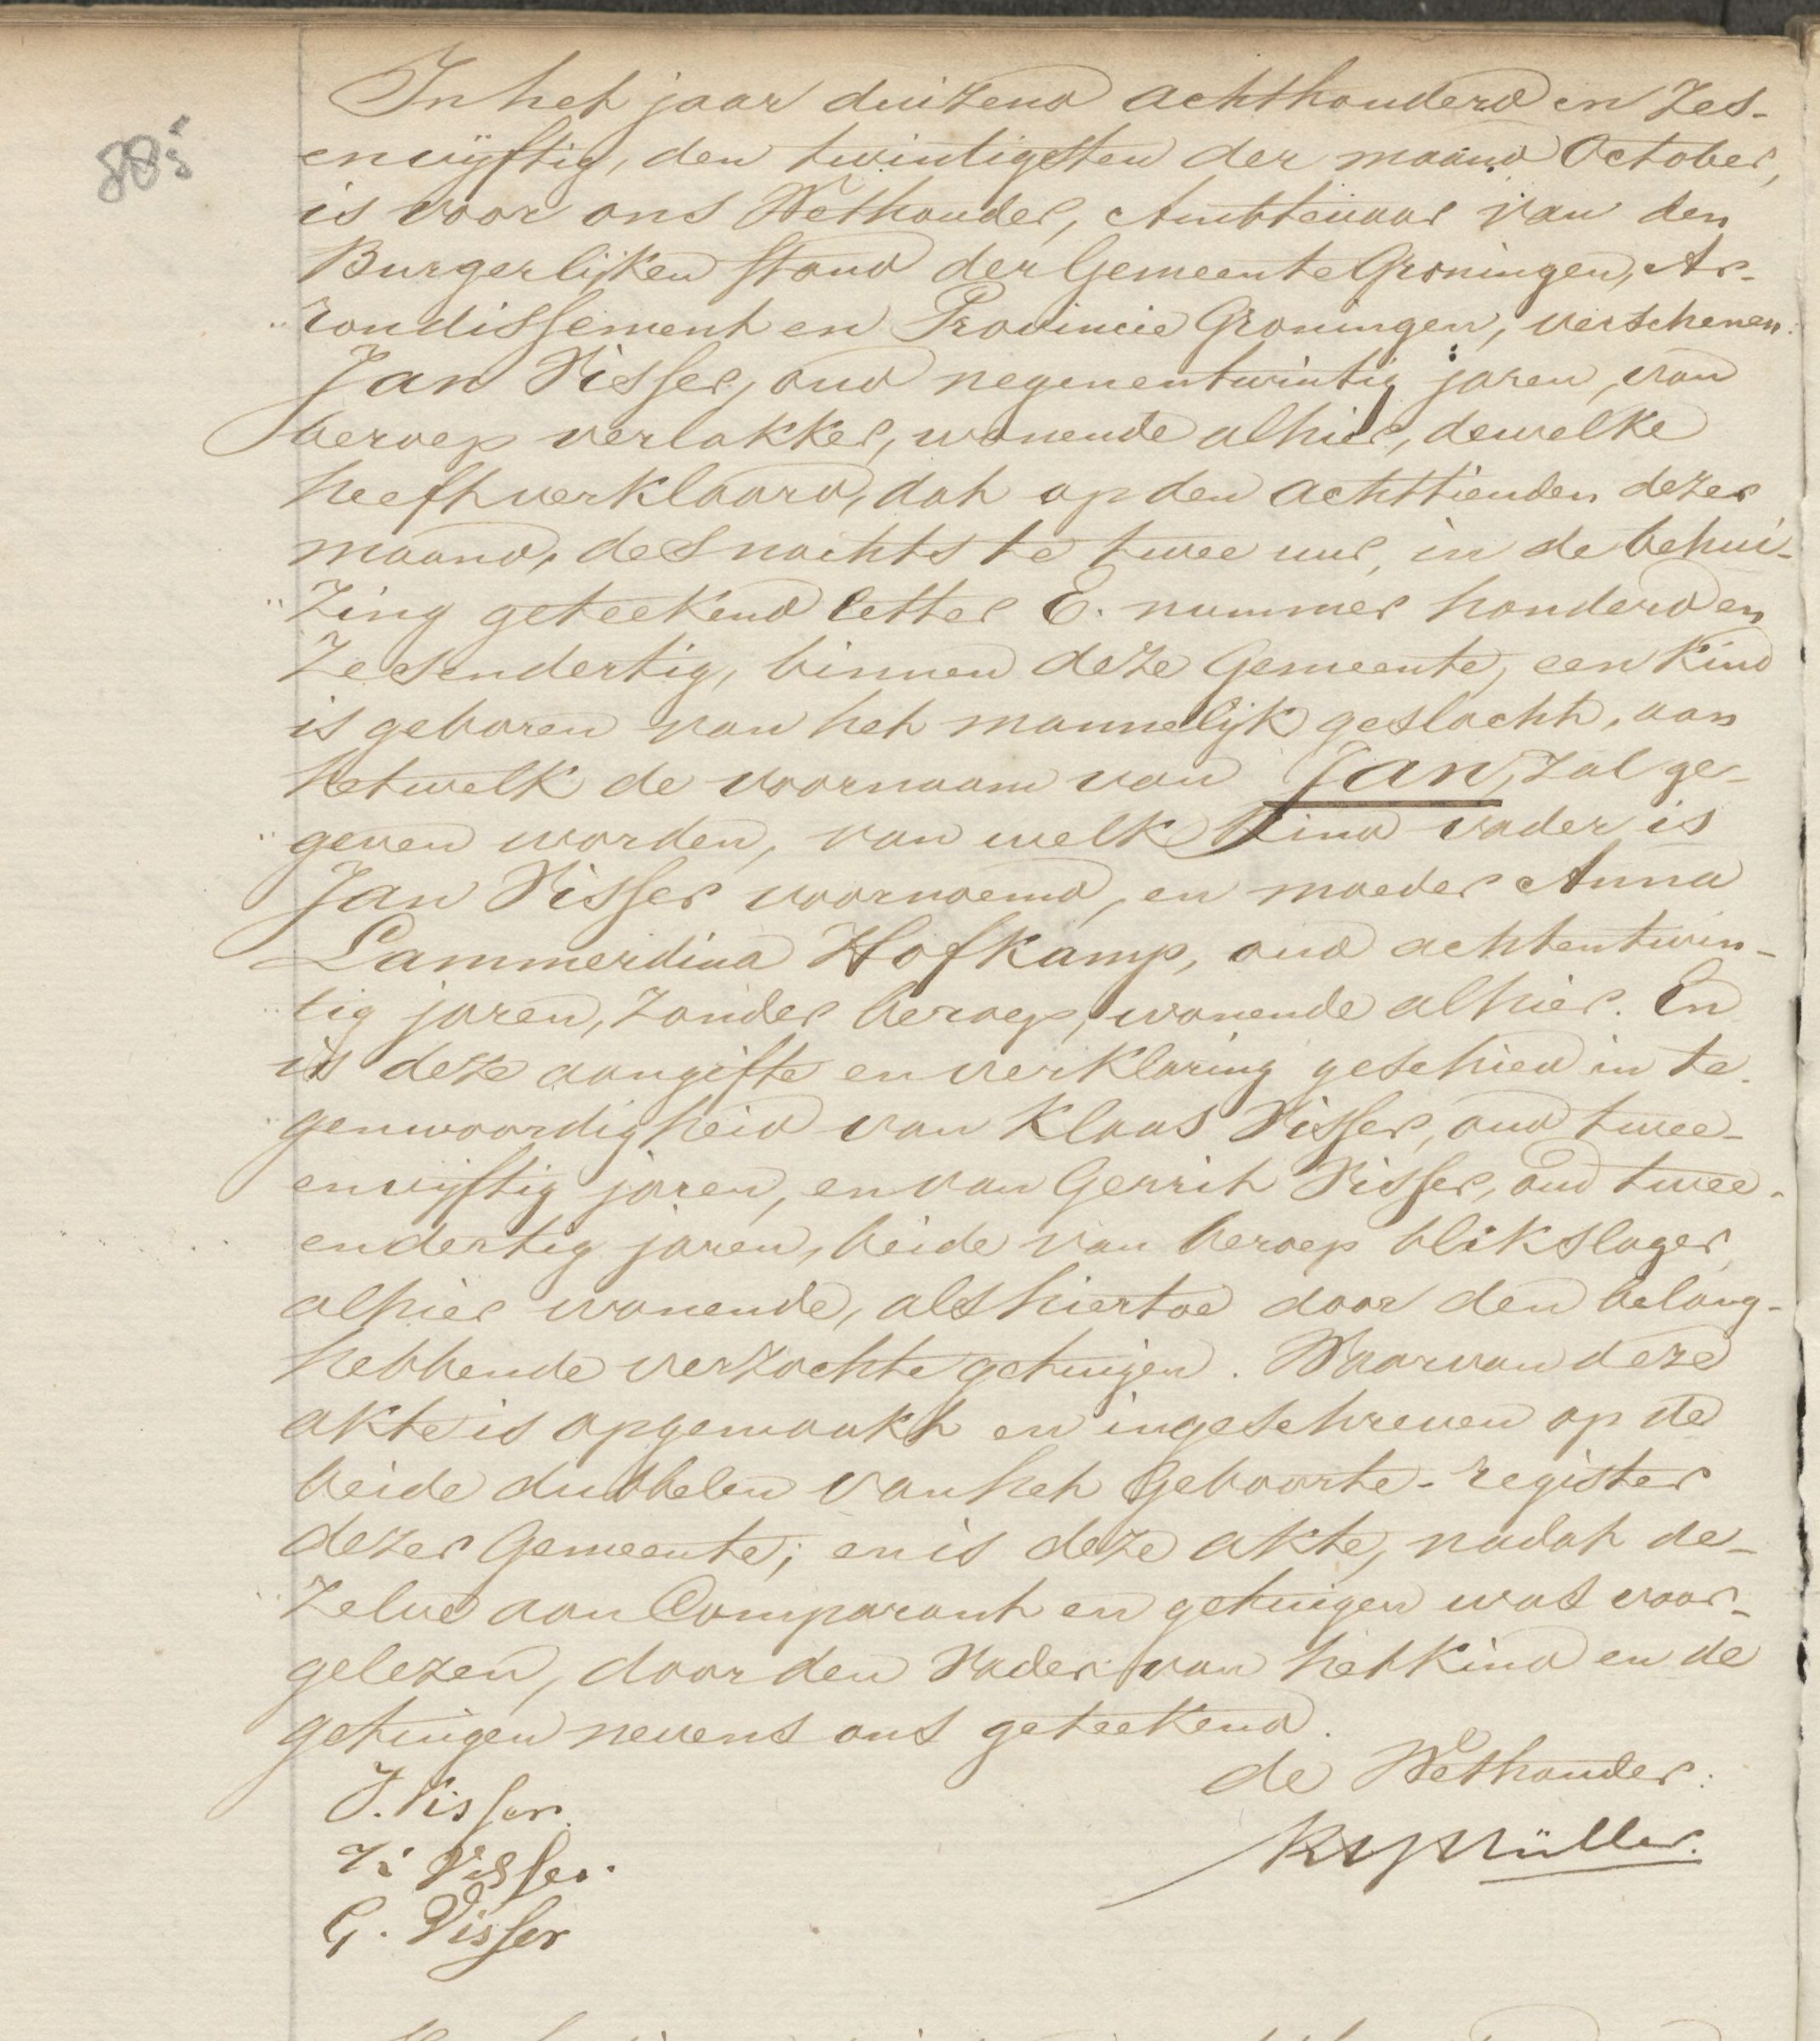 885
In het jaar duizend achthonderd en zes-
envijftig, den twintigsten der maand October,
is voor ons Wethouder, Ambtenaar van den
Burgerlijken stand der Gemeente Groningen, Ar-
rondissement en Provincie Groningen, verschenen:
Jan Visser, oud negenentwintig jaren, van
beroep verlakker, wonende alhier, dewelke
heeft verklaard, dat op den achttienden dezer
maand, des nachts te twee uur, in de behui-
zing geteekend letter E. nummer honderd en
zesendertig, binnen deze Gemeente, een kind
is geboren van het mannelijk geslacht, aan
hetwelk de voornaam van Jan, zal ge-
geven worden, van welk kind vader is
Jan Visser voornoemd, en moeder Anna
Lammerdina Hofkamp, oud achtentwin-
tig jaren, zonder beroep, wonende alhier. En
is deze aangifte en verklaring geschied in te-
genwoordigheid van Klaas Visser, oud twee-
envijftig jaren, en van Gerrit Visser, oud twee-
endertig jaren, beide van beroep blikslager,
alhier wonende, als hiertoe door den belang-
hebbende verzochte getuigen. Waarvan deze
akte is opgemaakt en ingeschreven op de
beide dubbelen van het Geboorte-register
dezer Gemeente; en is deze akte, nadat de-
zelve aan Comparant en getuigen was voor-
gelezen, door den Vader van het kind en de
getuigen nevens ons geteekend.
de Wethouder:
J. Visser.
K Visser.
Müller.
G. Visser